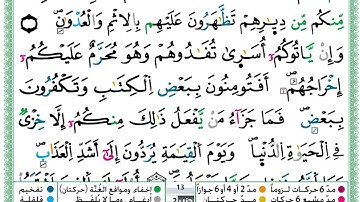 مِّنكُم مِّن دِيَـٰرِهِمْ تَظَّـٰهَرُونَ عَلَيْهِم بِٱلْإِثْمِ وَٱلْعُدْوَٰنِ
وَإِن يَأْتُوكُمْ أُسَـٰرَىٰ تُفَـٰدُوهُمْ وَهُوَ مُحَرَّمٌ عَلَيْكُمْ
إِخْرَاجُهُمْ ۚ أَفَتُؤْمِنُونَ بِبَعْضِ ٱلْكِتَـٰبِ وَتَكْفُرُونَ
بِبَعْضٍ ۚ فَمَا جَزَآءُ مَن يَفْعَلُ ذَٰلِكَ مِنكُمْ إِلَّا خِزْىٌ
فِى ٱلْحَيَوٰةِ ٱلدُّنْيَا ۖ وَيَوْمَ ٱلْقِيَـٰمَةِ يُرَدُّونَ إِلَىٰٓ أَشَدِّ ٱلْعَذَابِ
مدّ 6 حركات لزوماً مدّ 2 أو 4 أو 6 جوازاً 13 إخفاء ومواقع الغُنَّة (حركتان) تفخيم
مدّ مشبع 6 حركات مدّ حركتان إدغام، وما لا يُلفظ قلقلة